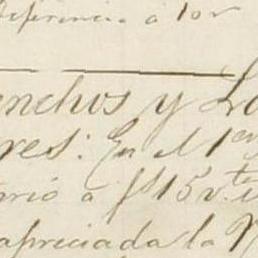 diferencia á 10 v
enchos y La
res: En el 1er
rrió á $15 v.te
apreciada la N